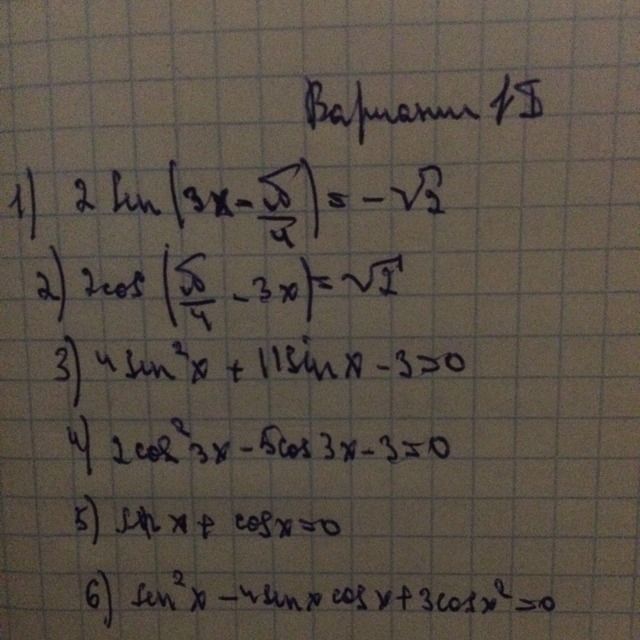 Вариант 1Б
1) 2 sin (3x - π/4) = - √2
2) 2cos (π/4 - 3x) = √2
3) 4 sin²x + 11 sin x - 3 = 0
4) 2cos²3x - 5cos 3x - 3 = 0
5) sin x + cos x = 0
6) sin²x - 4 sin x cos x + 3 cos x² = 0